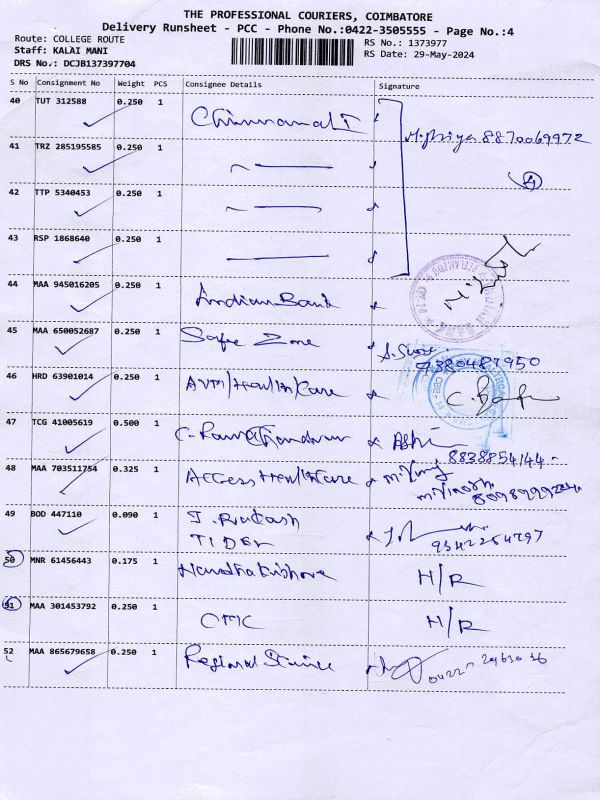 THE PROFESSIONAL COURIERS, COIMBATORE
Delivery Runsheet - PCC - Phone No.:0422-3505555 - Page No.:4
Route: COLLEGE ROUTE
RS No.: 1373977
Staff: KALAI MANI
RS Date: 29-May-2024
DRS No.: DCJB137397704
S No Consignment No Weight PCS Consignee Details Signature
40 TUT 312588 0.250 1
M.priya 8870069972
41 TRZ 285195585 0.250 1
4
42 TTP 5340453 0.250 1
43 RSP 1868640 0.250 1
44 MAA 945016205 0.250 1 Indian Bank
45 MAA 650052687 0.250 1 Safe Zone
9380487950
46 HRD 63901014 0.250 1 AVM/Health Care
47 TCG 41005619 0.500 1 C. Ramachandran
8838854144
48 MAA 703511754 0.325 1 Access HealthCare
49 BOD 447110 0.090 1 J. Prakash
TIDEL
9342254797
50 MNR 61456443 0.175 1 Nandha Kishore H/R
51 MAA 301453792 0.250 1 H/R
52 MAA 865679658 0.250 1 Regional Science
0422-